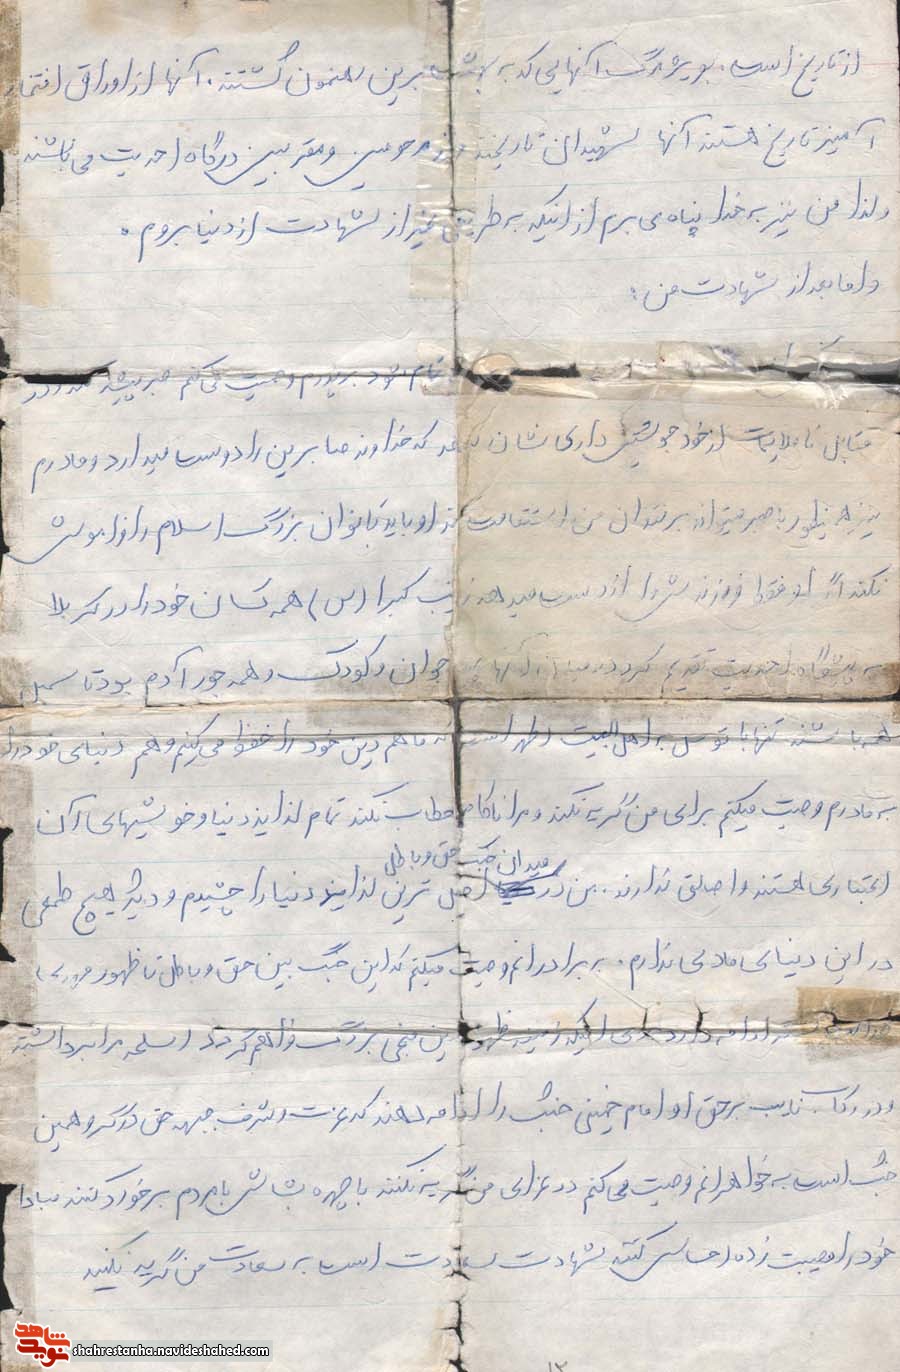 از تاریخ است. بویژه مرگ آنهایی که به بهشت برین رهنمون گشتند. آنها از اوراق افتخار
آمیز تاریخ هستند آنها شهیدان تاریخند و مرحومین و مقربین درگاه احدیت می باشند
ولذا من نیز به خدا پناه می برم از اینکه به طریقی غیر از شهادت از دنیا بروم.
و اما بعد از شهادت من:
شود بر پدرم وصیت می کنم صبر پیشه کند و در
مقابل ناملایمات از خود خویشتن داری نشان دهد که خداوند صابرین را دوست میدارد و مادرم
نیز همینطور با صبر میتواند بر فقدان من استقامت کند او باید بانوان بزرگ اسلام را فراموش
نکند اگر او فقط فرزندش را از دست میدهد زینب کبرا (س) همه کسان خود را در کربلا
به پیشگاه احدیت تقدیم کرد در میان آنها پیر جوان و کودک و همه جور آدم بود تا سمبل
همه باشند تنها با توسل به اهل البیت اطهر است که ما هم دین خود را حفظ می کنیم و هم دنیای خود را
به مادرم وصیت میکنم برای من گریه نکند و مرا ناکام خطاب نکند تمام لذایذ دنیا و خوشیهای آن
اعتباری هستند و اصالتی ندارند. من در میدان جنگ حق و باطل اصیل ترین لذایذ دنیا را چشیدم و دیگر هیچ طمعی
در این دنیای مادی ندارم. به برادرانم وصیت میکنم که این جنگ بین حق و باطل تا ظهور مهدی
ادامه دارد برای اینکه زمینه ظهور این منجی بزرگ فراهم گردد اسلحه مرا برداشته
و در رکاب نایب برحق او امام خمینی جنگ را ادامه دهند که عزت و شرف جبهه حق در گرو همین
جنگ است به خواهرانم وصیت می کنم در عزای من گریه نکنند با چهره بشاش با مردم برخورد کنند مبادا
خود را مصیبت زده احساس کنند شهادت سعادت است به سعادت من گریه نکنید
۱۳
نوید شاهد
shahrestanha.navideshahed.com